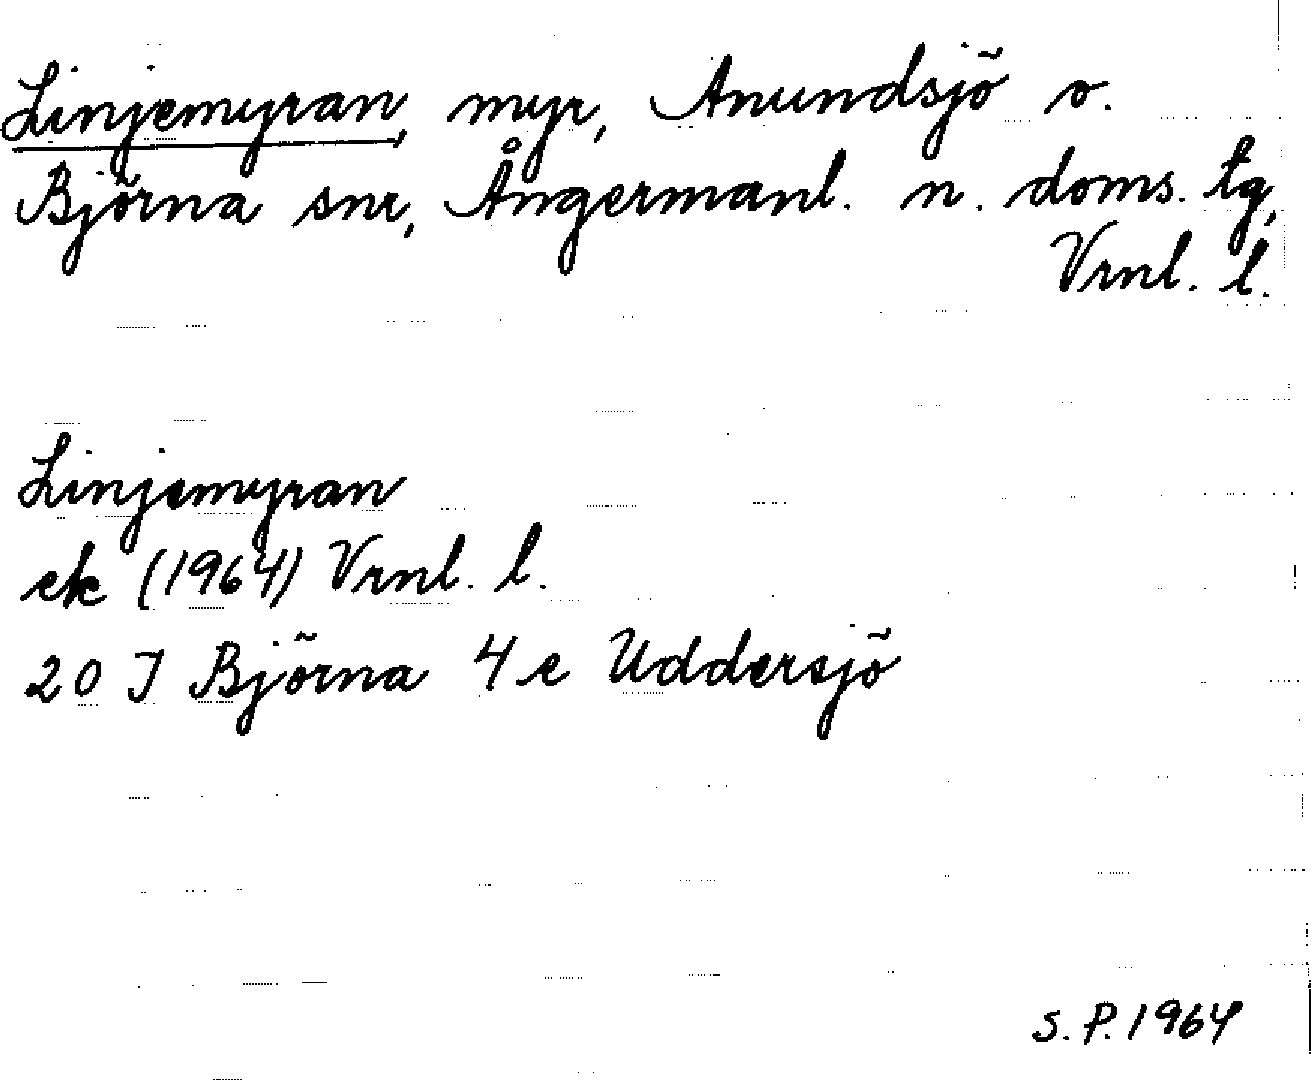 Linjemyran, myr, Anundsjö o.
Björna snr, Ångermanl. n. doms. tg,
Vrnl. l.
Linjemyran
ek (1964) Vrnl. l.
20 J Björna 4 e Uddersjö
S. P. 1964